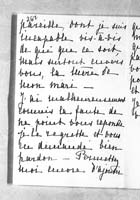 pareille, dont je suis
incapable vis-à-vis
de qui que ce soit,
mais surtout envers
vous, la mère de
mon mari —
J'ai malheureusement
commis la faute de
ne point vous répondre
je la regrette et vous
en demande bien
pardon — Permettez
moi encore d'ajouter